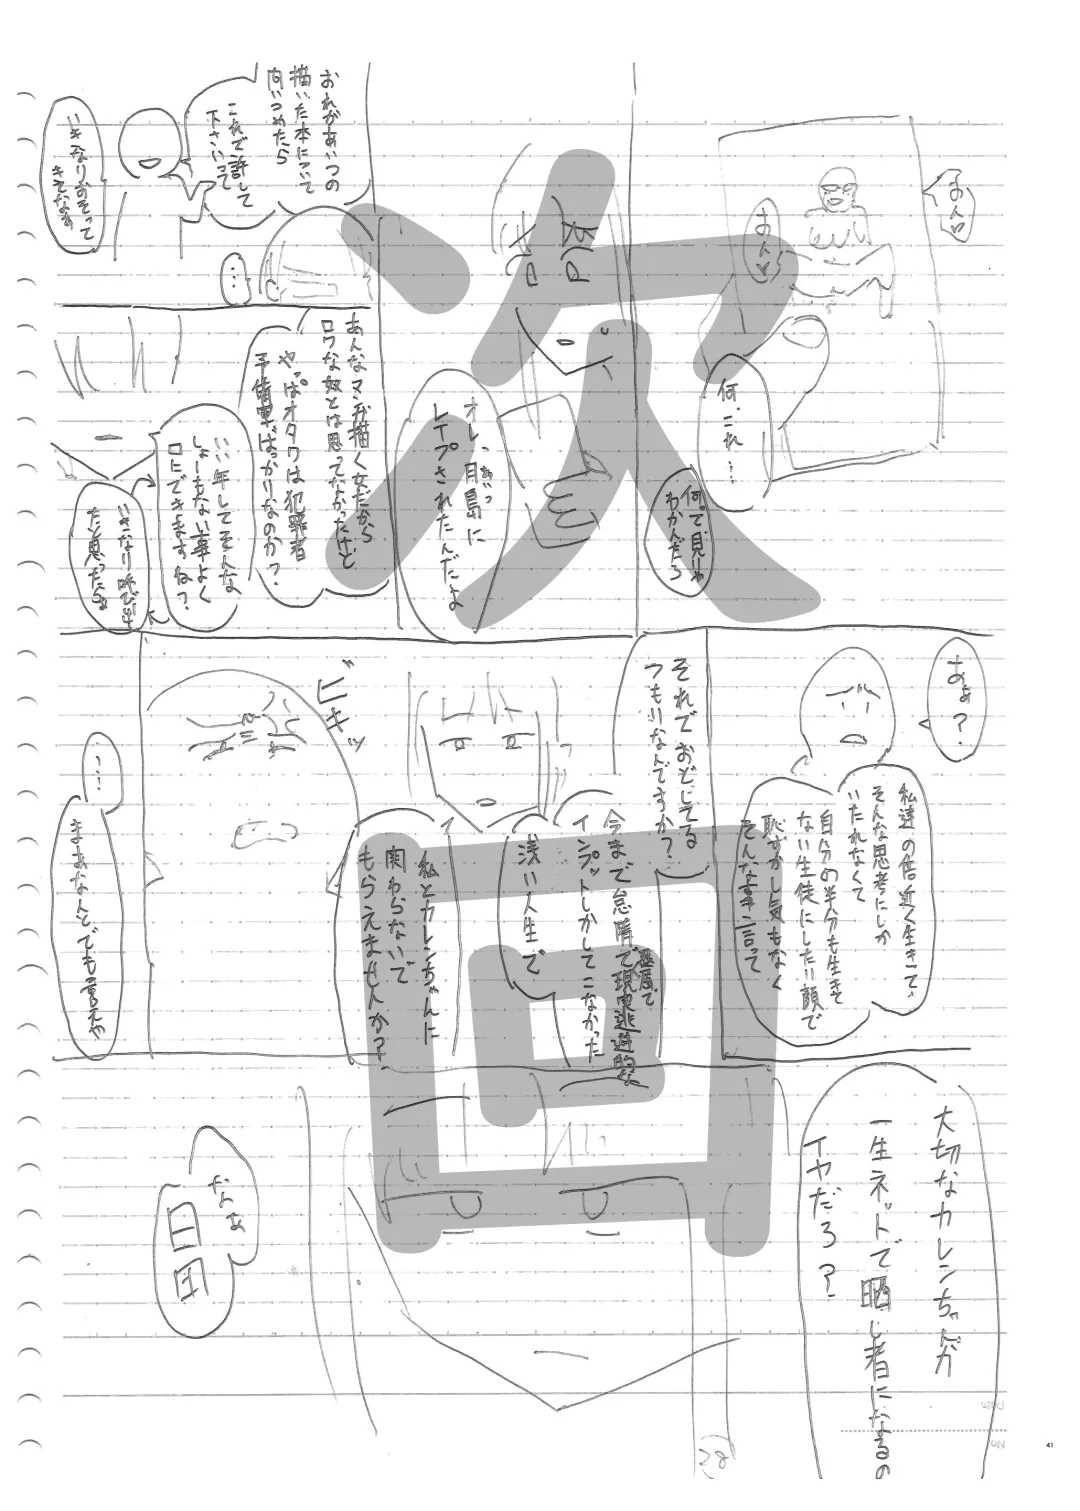 あん♡
あん♡
何、これ…
何って見りゃ
わかんだろ
オレ、月島に
あいつ
レイプされたんだよ
おれがあいつの
描いた本について
問いつめたら
これで許して
下さいって
いきなりおそって
きてなぁ
…
あんなマンガ描く女だから
ロクな奴とは思ってなかったけど
やっぱオタクは犯罪者
予備軍ばっかりなのか？
いい年してそんな
しょーもない事よく
口にできますね？
いきなり呼び出し
たと思ったら
あぁ？
私達の倍近く生きて、
そんな思考にしか
いたれなくて
自分の半分も生きて
ない生徒にしたい顔で
恥ずかし気もなく
そんな事言って
それでおどしてる
つもりなんですか？
今まで怠惰で
現実逃避的な
インプットしかしてこなかった
浅い人生で
私とカレンちゃんに
関わらないで
もらえませんか？
ビキッ
…
まぁなんとでも言えや
大切なカレンちゃんが
一生ネットで晒し者になるの
イヤだろ？
なぁ
日田
次
回
28
41